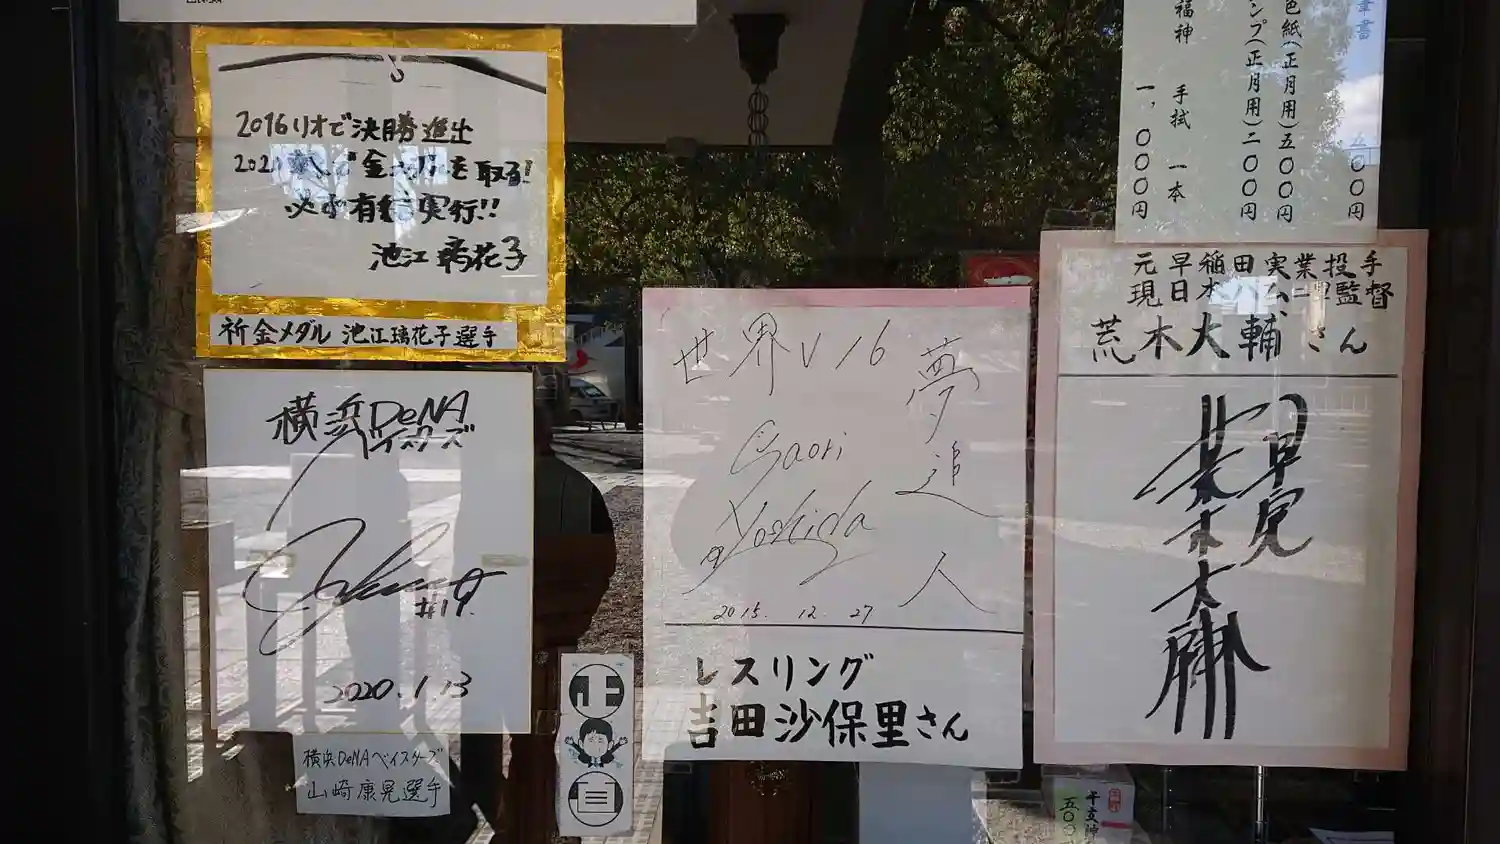 2016リオで決勝進出
2020 で金メダルを取る!
必ず有言実行!!
池江璃花子
祈金メダル 池江璃花子選手
横浜DeNA
ベイスターズ
#19.
2020.1.13
横浜DeNAベイスターズ
山﨑康晃選手
世界V16
夢追人
Saori
Yoshida
2015. 12. 27
レスリング
吉田沙保里さん
福神 手拭 一本
一,〇〇〇円
ンプ(正月用)二〇〇円
色紙(正月用)五〇〇円
五〇〇円
元早稲田実業投手
現日 監督
荒木大輔さん
早実
荒木大輔
五〇〇